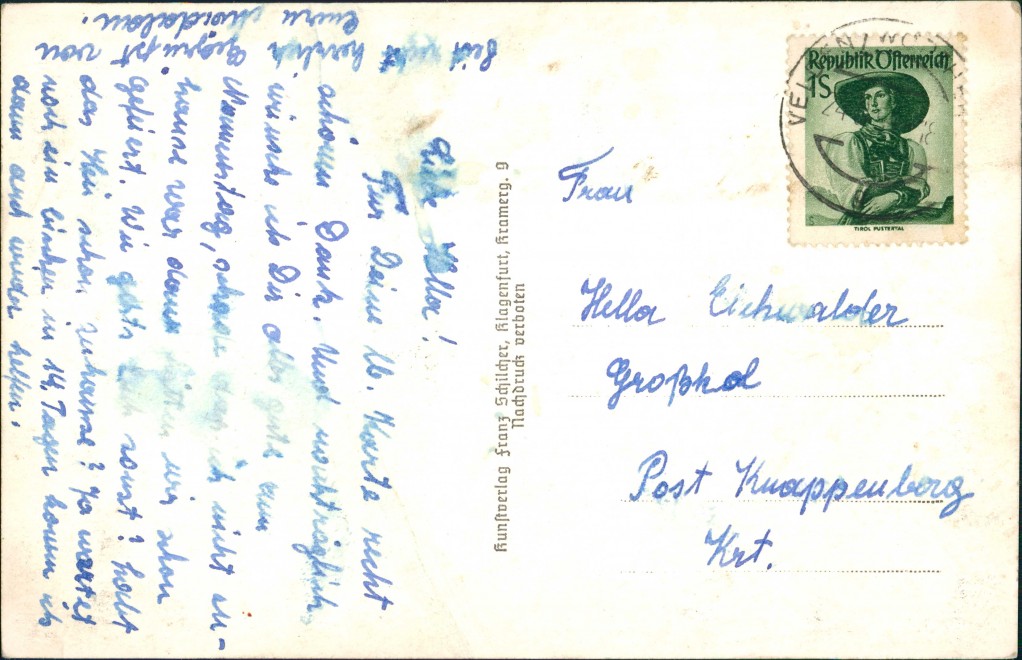 Liebe Hella!
Für Deine lb. Karte recht
schönen Dank. Und nachträglich
wünsche ich Dir alles gute zum
Namenstag, schade das ich nicht zu-
hause war dann hätten wir schon
gefeiert. Wie gehts Euch sonst? habt
das Heu schon zuhause? Ja wartet
noch ein bischen in 14. Tagen komm ich
dann auch wieder helfen.
Seid recht herzlich gegrüßt von
eurer
Kunstverlag Franz Schilcher, Klagenfurt, Kramerg. 9
Nachdruck verboten
Republik Österreich
1S
TIROL PUSTERTAL
Frau
Hella Eichwalder
Großkol
Post Knappenberg
Krt.